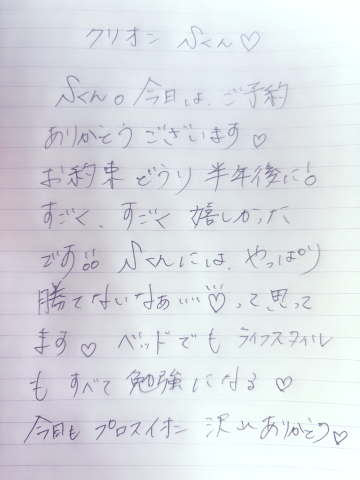 クリオン Sくん♡
Sくん。今日は、ご予約
ありがとうございます♡
お約束どうり 半年後に!!
すごく、すごく 嬉しかった
です!! Sくんには、やっぱり
勝てないなぁ……♡って思って
ます♡ ベッドでも ライフスタイル
も すべて 勉強になる ♡
今日も プロスイホン 沢山ありがとう♡